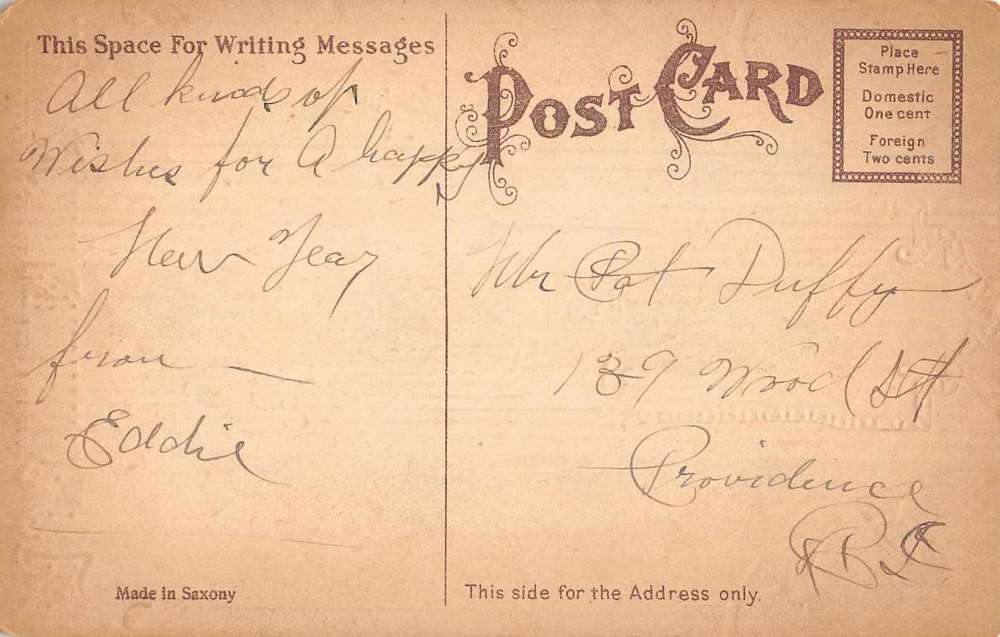 This Space For Writing Messages
All kinds of
Wishes for A happy
New Year
from —
Eddie
Made in Saxony
POST CARD
Place
Stamp Here
Domestic
One cent
Foreign
Two cents
Mr Pat Duffy
139 Wood St
Providence
R I
This side for the Address only.